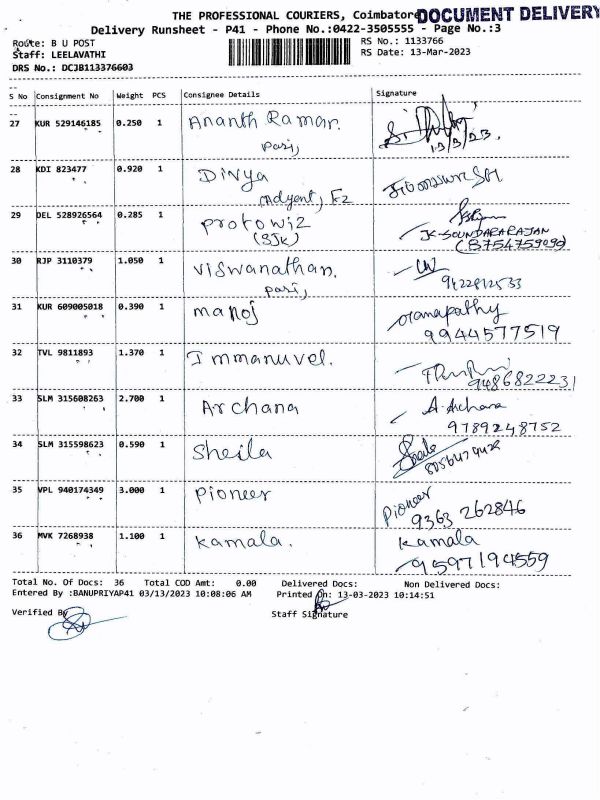 THE PROFESSIONAL COURIERS, Coimbatore
DOCUMENT DELIVERY
Delivery Runsheet - P41 - Phone No.:0422-3505555 - Page No.:3
Route: B U POST
RS No.: 1133766
Staff: LEELAVATHI
RS Date: 13-Mar-2023
DRS No.: DCJB113376603
S No Consignment No Weight PCS Consignee Details Signature
27 KUR 529146185 0.250 1 Ananth Raman.
13/3/23.
28 KDI 823477 0.920 1 Divya
F2
29 DEL 528926564 0.285 1 Protowiz
(SJK) JK-SOUNDARARAJAN
(8754759090)
30 RJP 3110379 1.050 1 Viswanathan.
9422812533
31 KUR 609005018 0.390 1 Manoj Ganapathy
9944577519
32 TVL 9811893 1.370 1 Immanuvel.
9486822231
33 SLM 315608263 2.700 1 Archana A. Archana
9789248752
34 SLM 315598623 0.590 1 Sheila
35 VPL 940174349 3.000 1 Pioneer Pioneer
9363 262846
36 MVK 7268938 1.100 1 Kamala. Kamala
9597194559
Total No. Of Docs: 36 Total COD Amt: 0.00 Delivered Docs: Non Delivered Docs:
Entered By :BANUPRIYAP41 03/13/2023 10:08:06 AM Printed On: 13-03-2023 10:14:51
Verified By Staff Signature